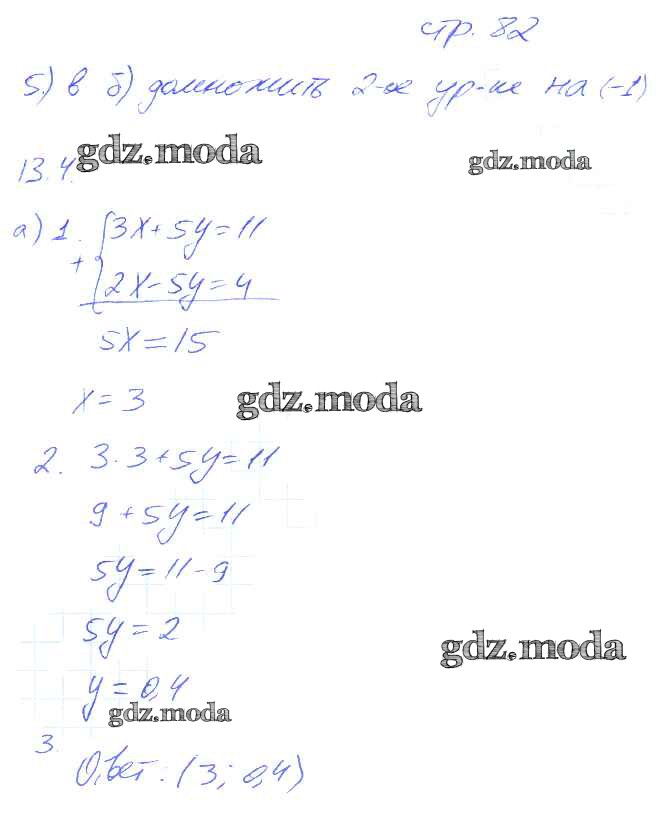 стр. 82
5.) в б) домножить 2-ое ур-ие на (-1)
gdz.moda
gdz.moda
13.4.
а) 1. { 3x + 5y = 11
+ { 2x - 5y = 4
5x = 15
x = 3
gdz.moda
2. 3 · 3 + 5y = 11
9 + 5y = 11
5y = 11 - 9
5y = 2
gdz.moda
y = 0,4
gdz.moda
3.
Ответ: (3; 0,4)